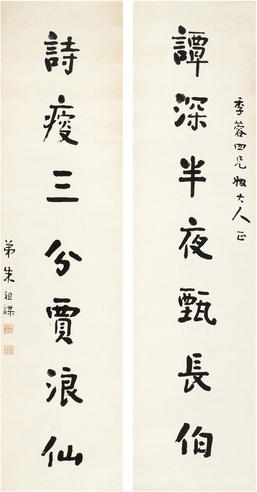 季蓉四兄姻大人正
譚深半夜甄長伯
詩瘦三分賈浪仙
弟朱祖謀